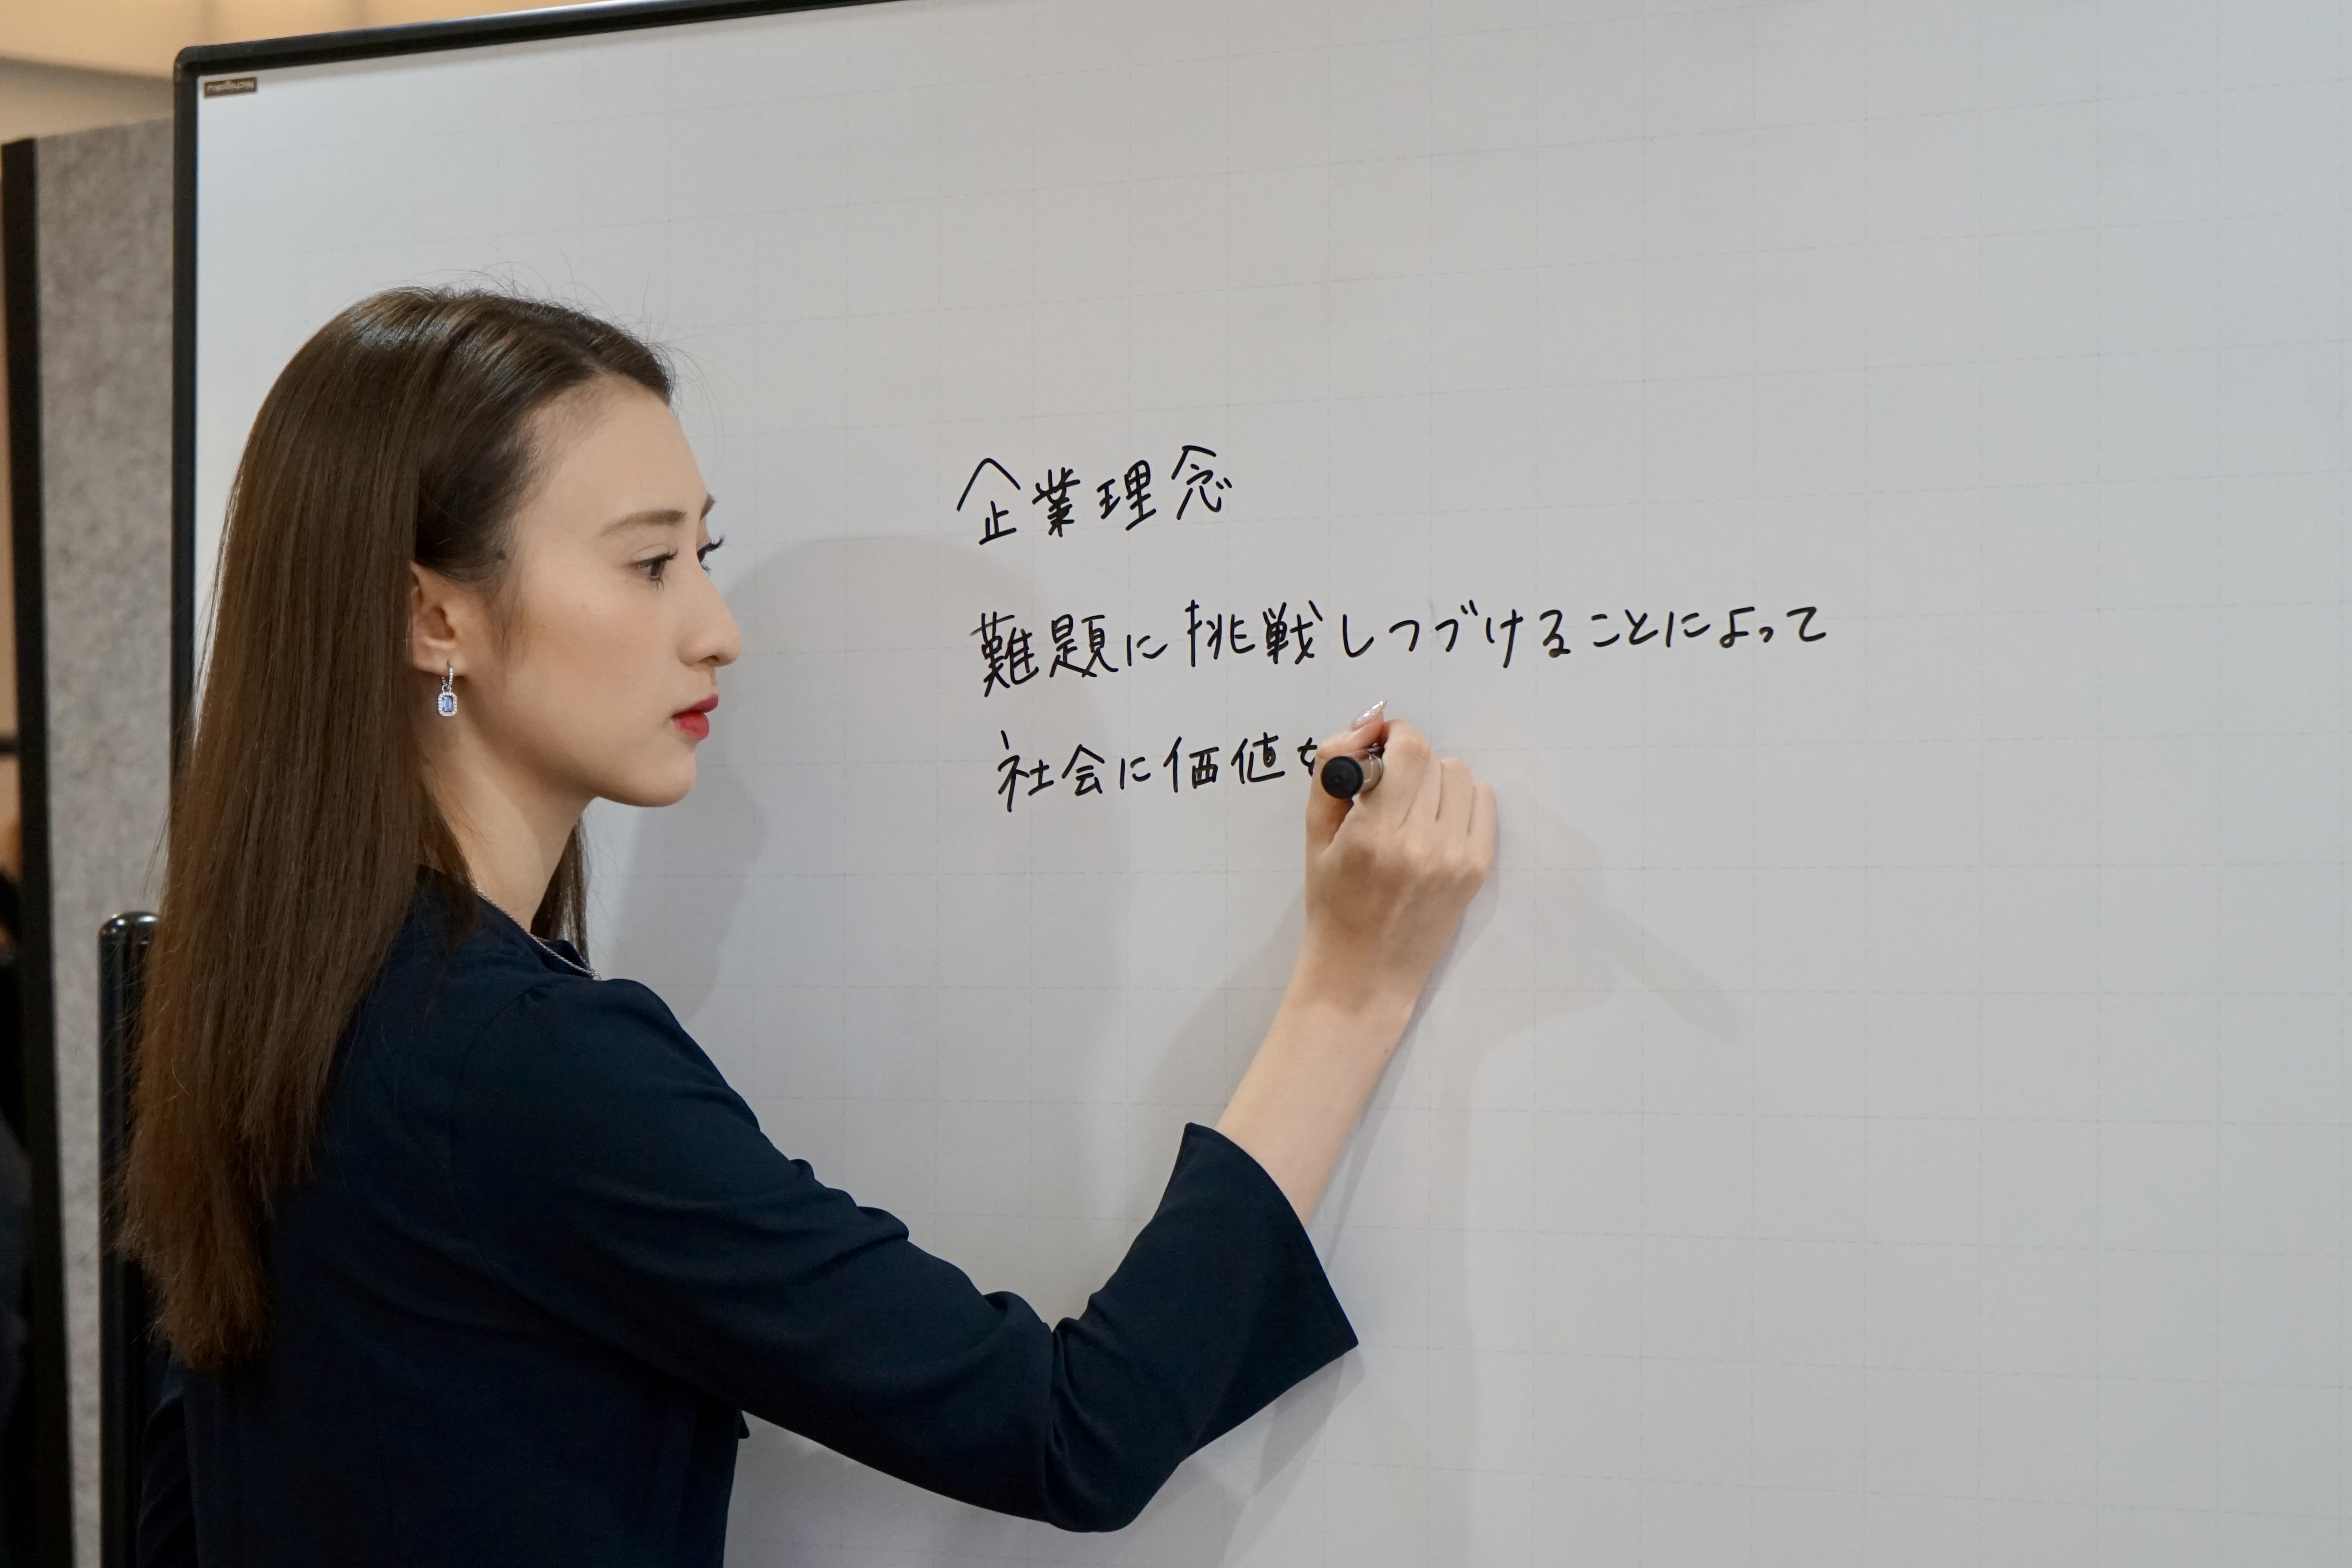 Nichigaku
企業理念
難題に挑戦しつづけることによって
社会に価値を